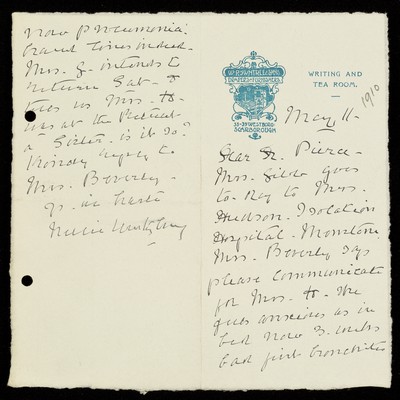 W. ROWNTREE & SONS
DRAPERS & FURNISHERS
33-39 WESTBORO
SCARBOROUGH
WRITING AND
TEA ROOM.
May 11 -
1910
Dear Dr. Pierce -
Mrs. goes
to-day to Mrs.
Hudson. Isolation
Hospital.
Mrs. Beverly says
please communicate
for Mrs. H- She
feels anxious as in
bed now 3. weeks
bad first bronchitis
now pneumonia.
hard lines indeed.
Mrs. G. intends to
return Sat -
tells us Mrs. H-
was at the Retreat
a Sister. is it so?
Kindly reply to
Mrs. Beverly -
Yrs. in haste
Nellie